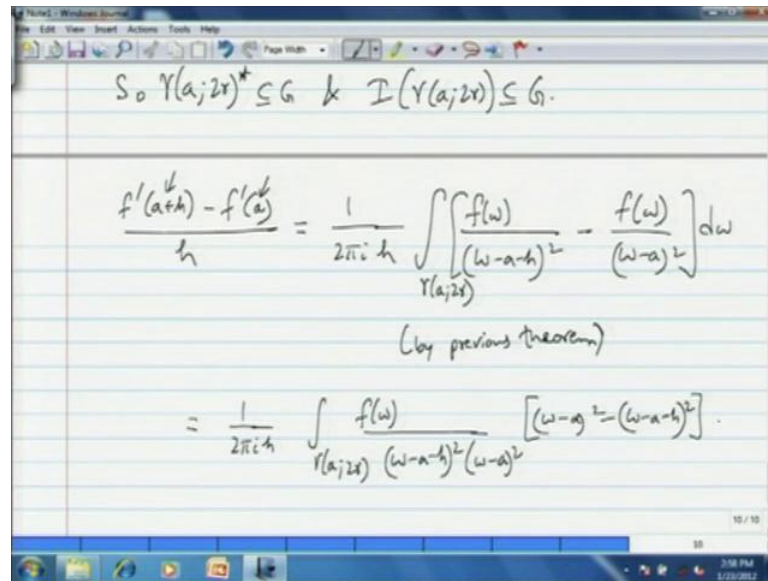 Note1 - Windows Journal
File Edit View Insert Actions Tools Help
Page Width
So γ(a;2r)* ⊆ G & I(γ(a;2r)) ⊆ G.
(f'(a+h) - f'(a))/h = 1/(2πi h) ∫_{γ(a;2r)} [f(w)/(w-a-h)² - f(w)/(w-a)²] dw
(by previous theorem)
= 1/(2πi h) ∫_{γ(a;2r)} f(w)/((w-a-h)² (w-a)²) [(w-a)² - (w-a-h)²].
10 / 10
10
2:58 PM
1/23/2012